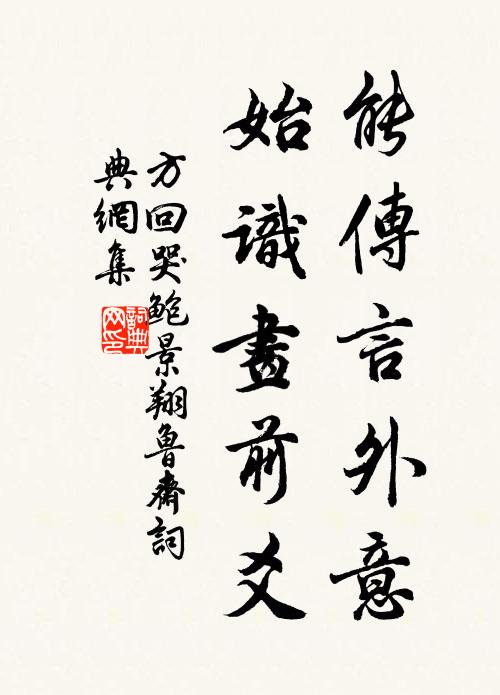 能傳言外意
始識畫前爻
方回哭鮑景翔魯齋詞
典網集
詞典網印